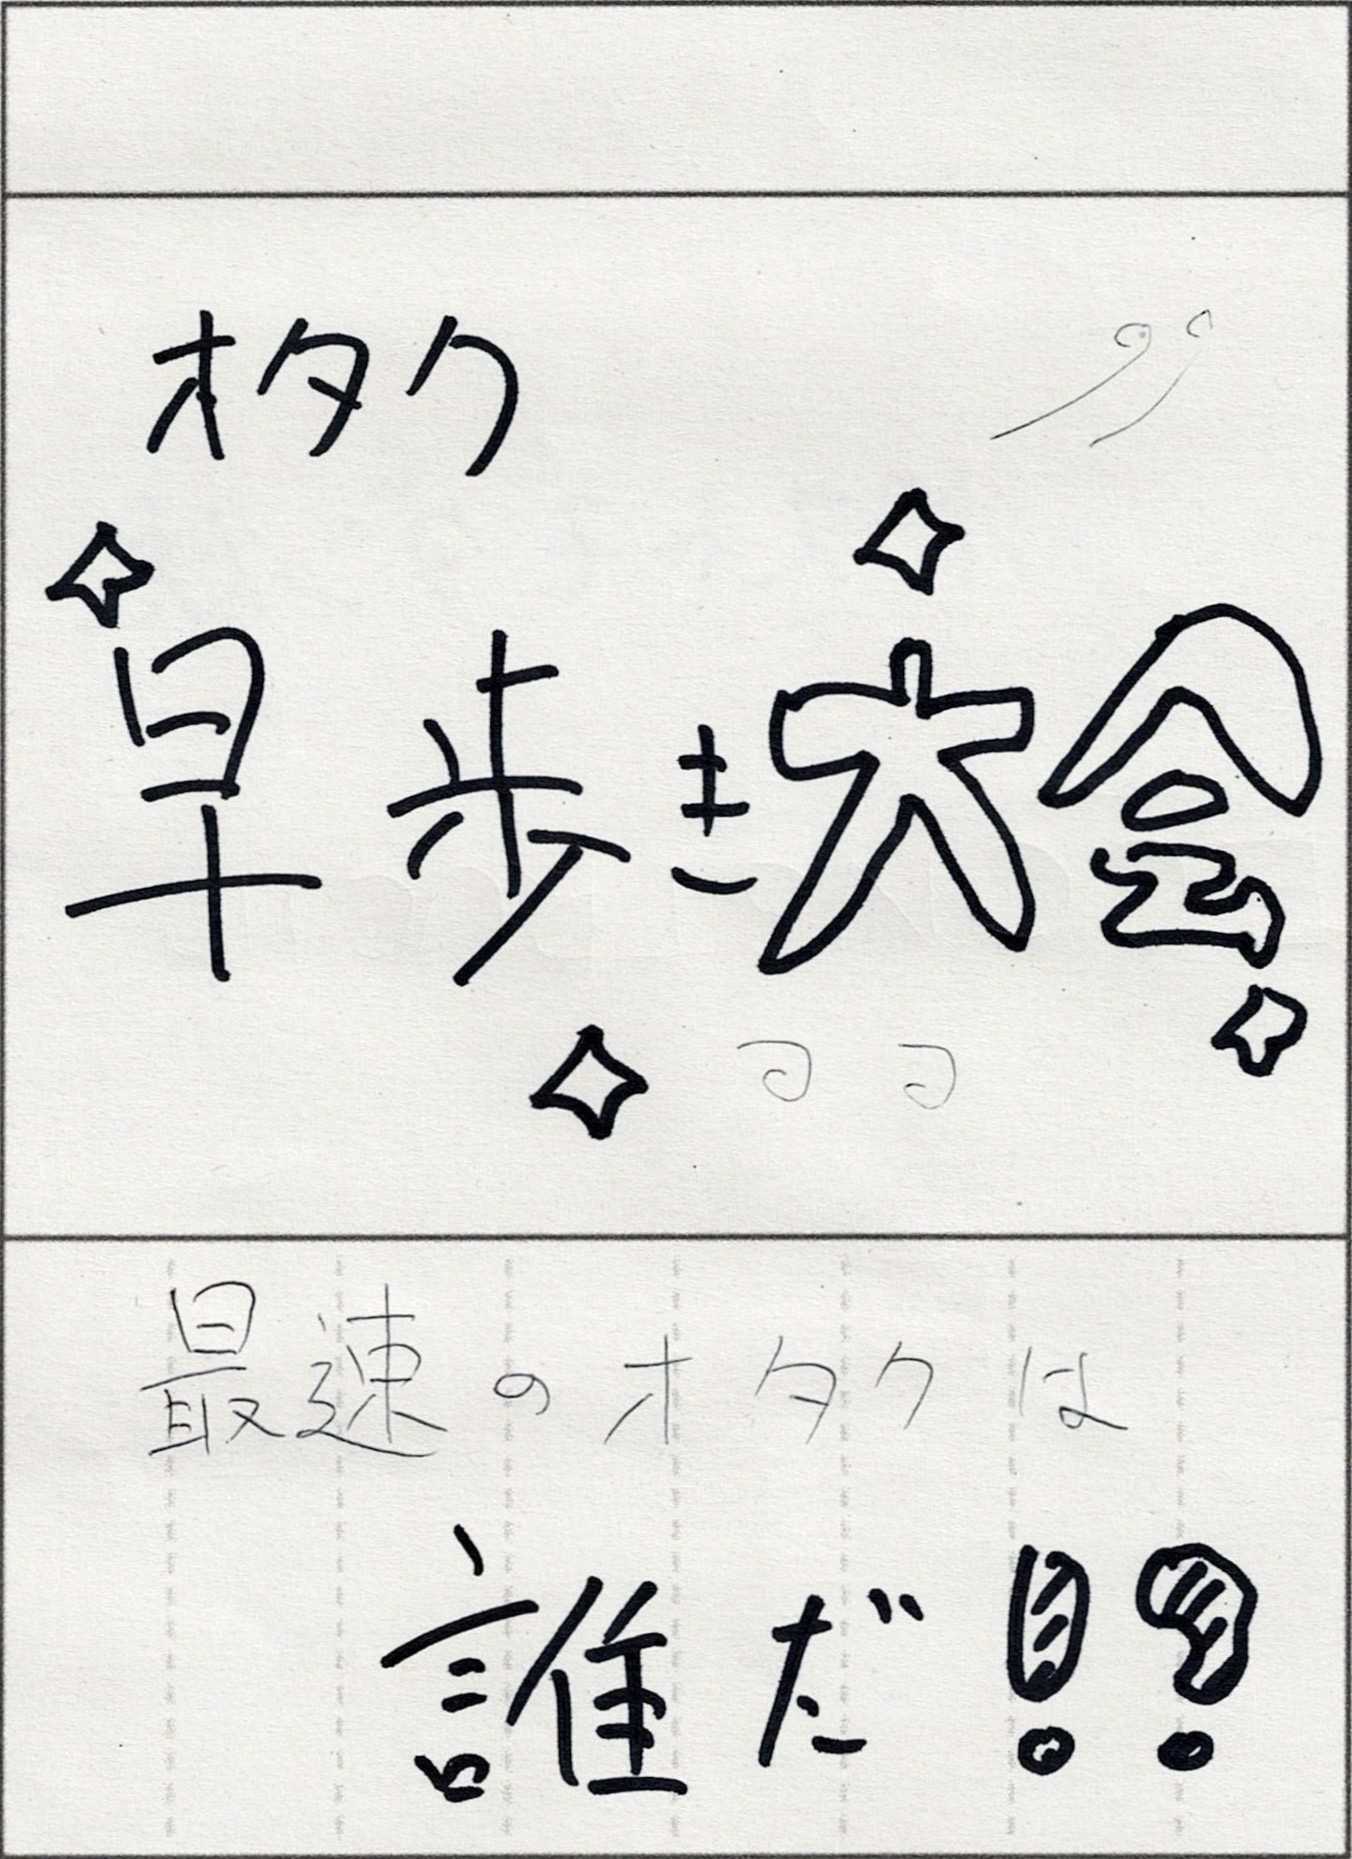 オタク
早歩き大会
最速のオタクは
誰だ!?